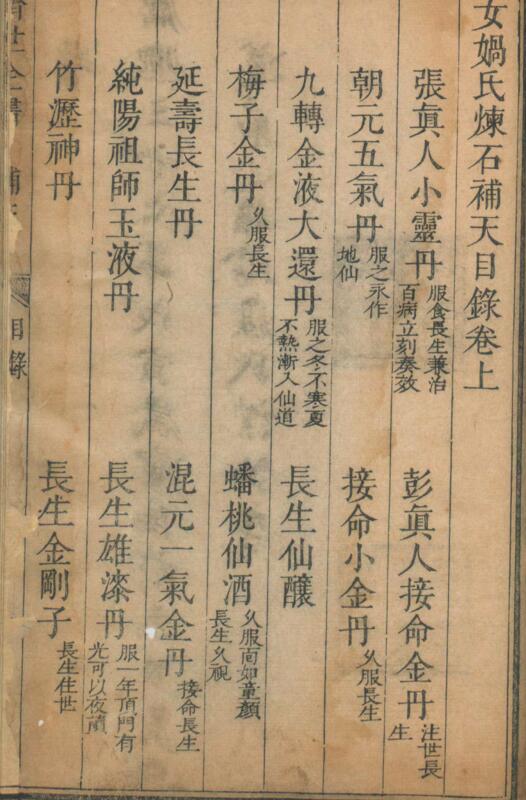 女媧氏煉石補天目錄卷上
張眞人小靈丹 服食長生兼治百病立刻奏效 彭眞人接命金丹 注世長生
朝元五氣丹 服之永作地仙 接命小金丹 久服長生
九轉金液大還丹 服之冬不寒夏不熱漸入仙道 長生仙釀
梅子金丹 久服長生 蟠桃仙酒 久服面如童顏長生久視
延壽長生丹 混元一氣金丹 接命長生
純陽祖師玉液丹 長生雄漆丹 服一年頂門有光可以夜讀
竹瀝神丹 長生金剛子 長生住世
目錄